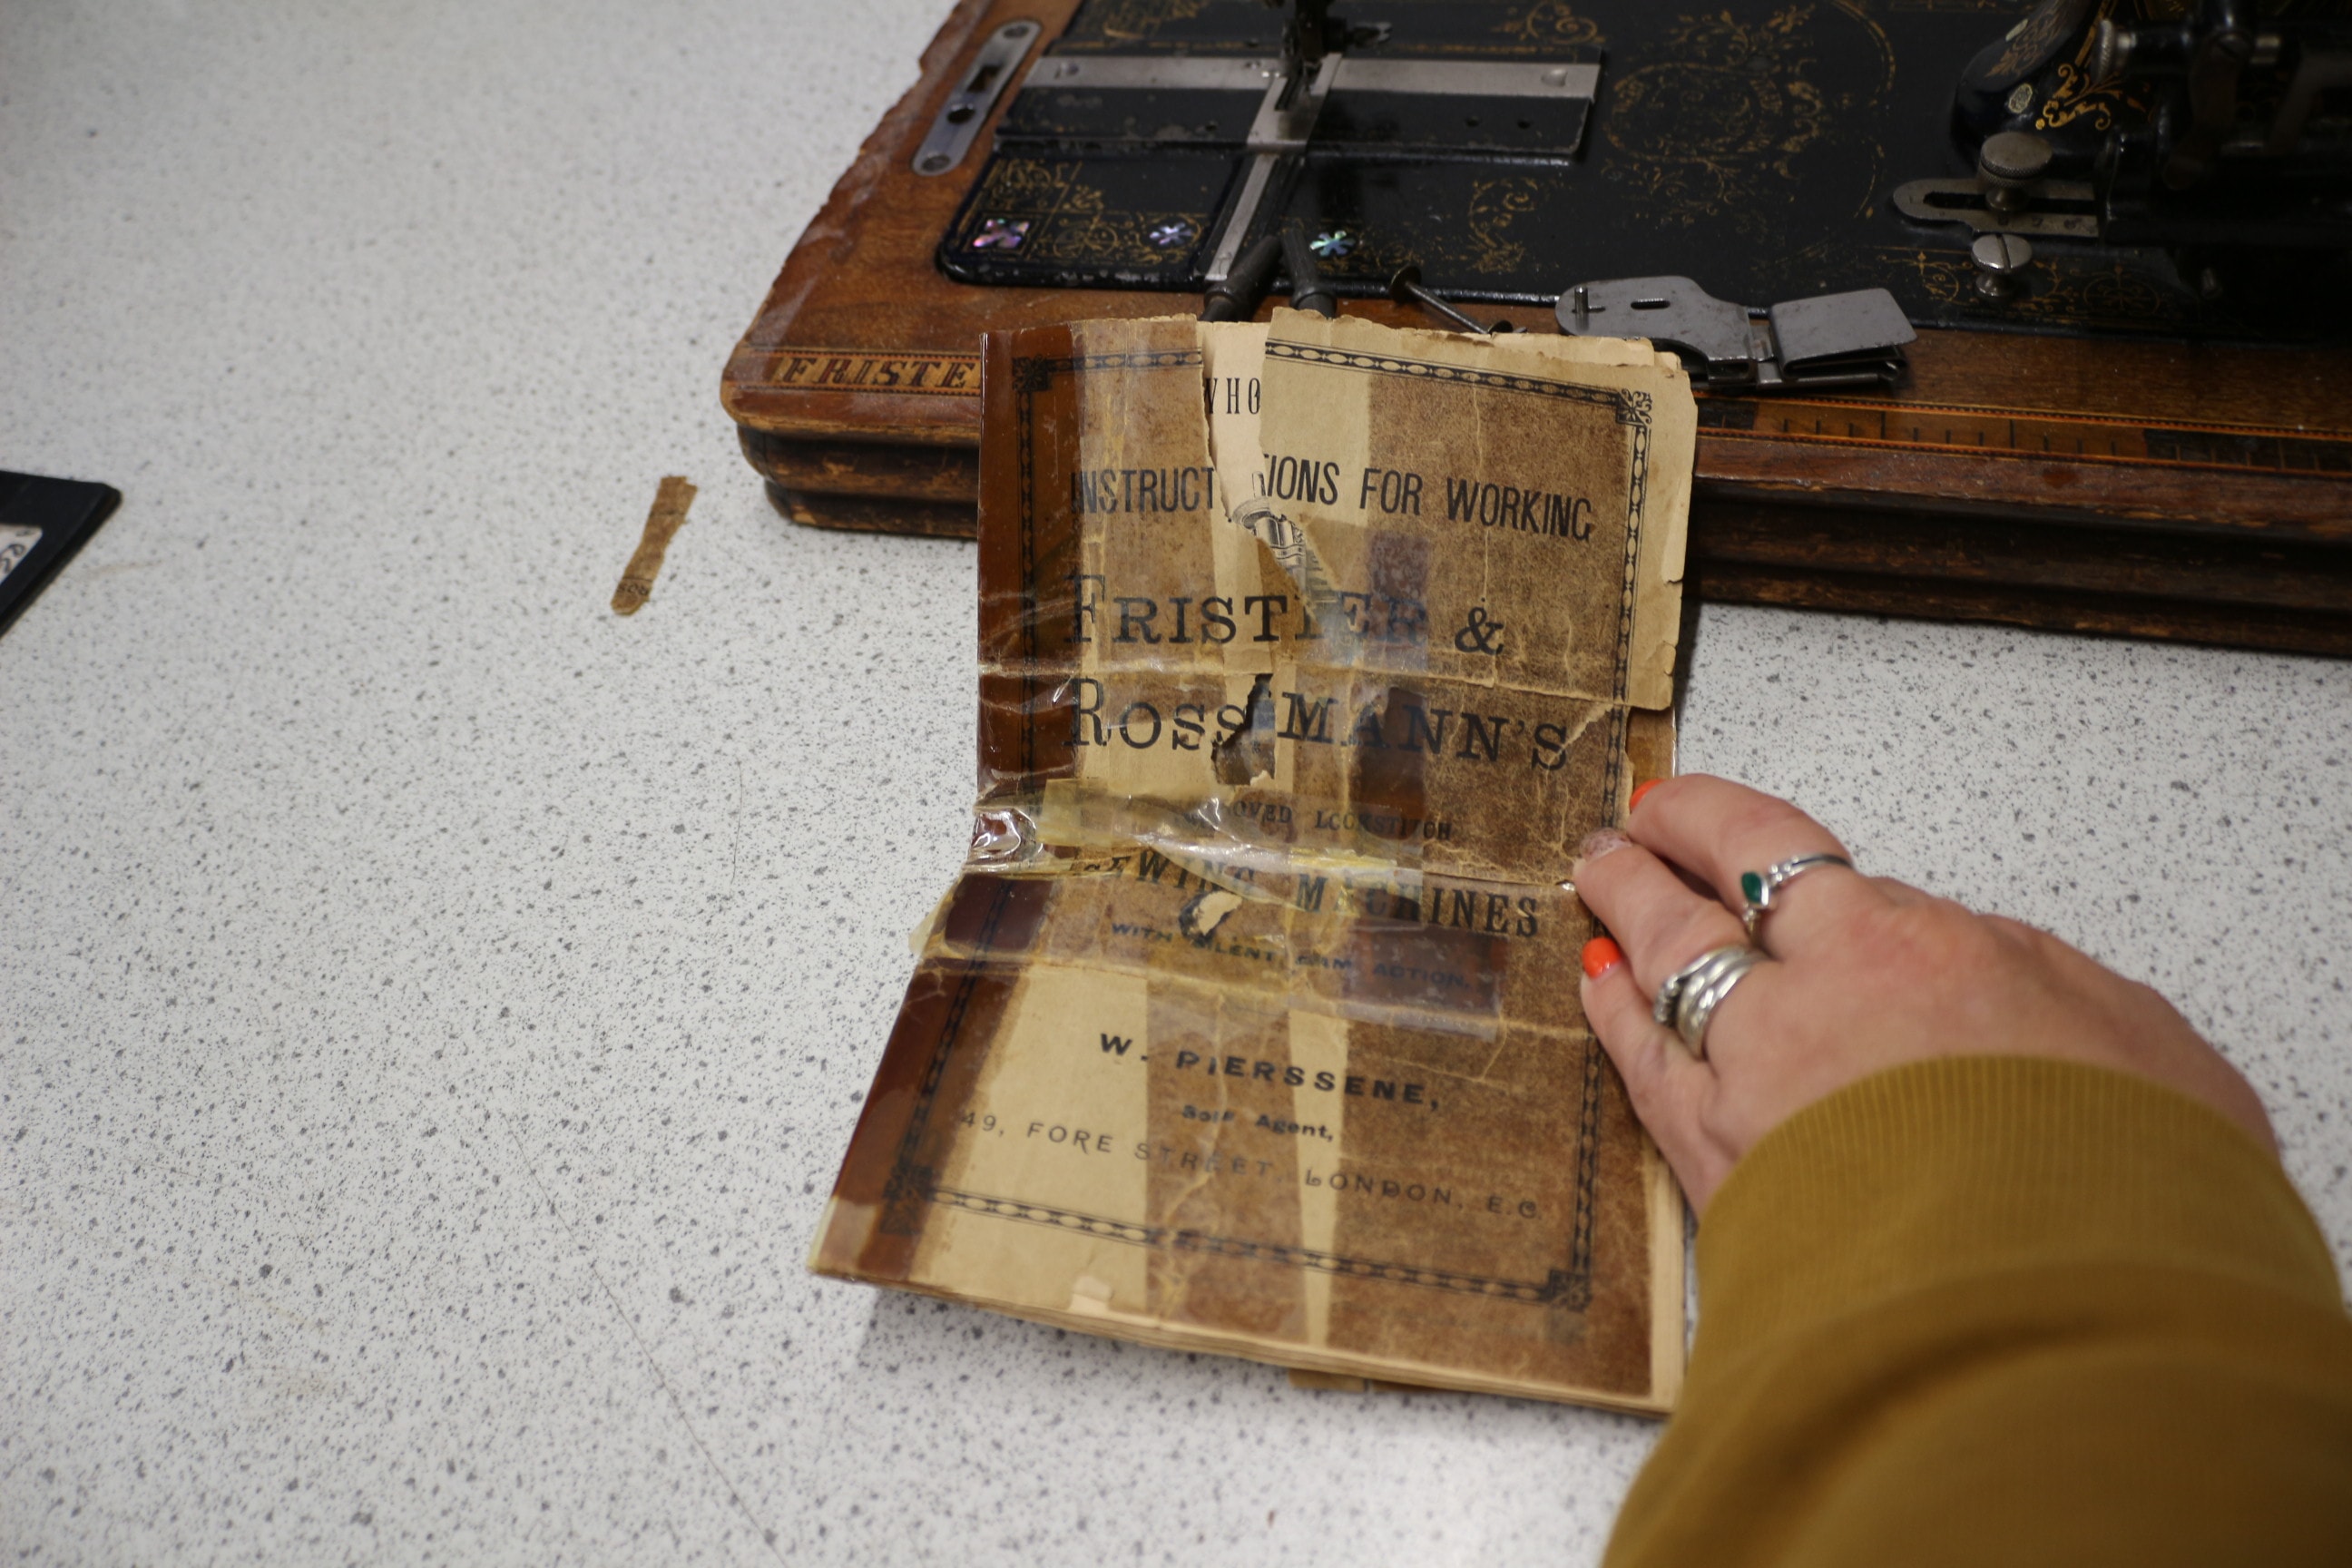 FRISTE
WHO
INSTRUCTIONS FOR WORKING
FRISTER &
ROSSMANN'S
OVED LOCKSTITCH
SEWING MACHINES
WITH SILENT CAM ACTION.
W. PIERSSENE,
Sole Agent,
49, FORE STREET, LONDON, E.C.